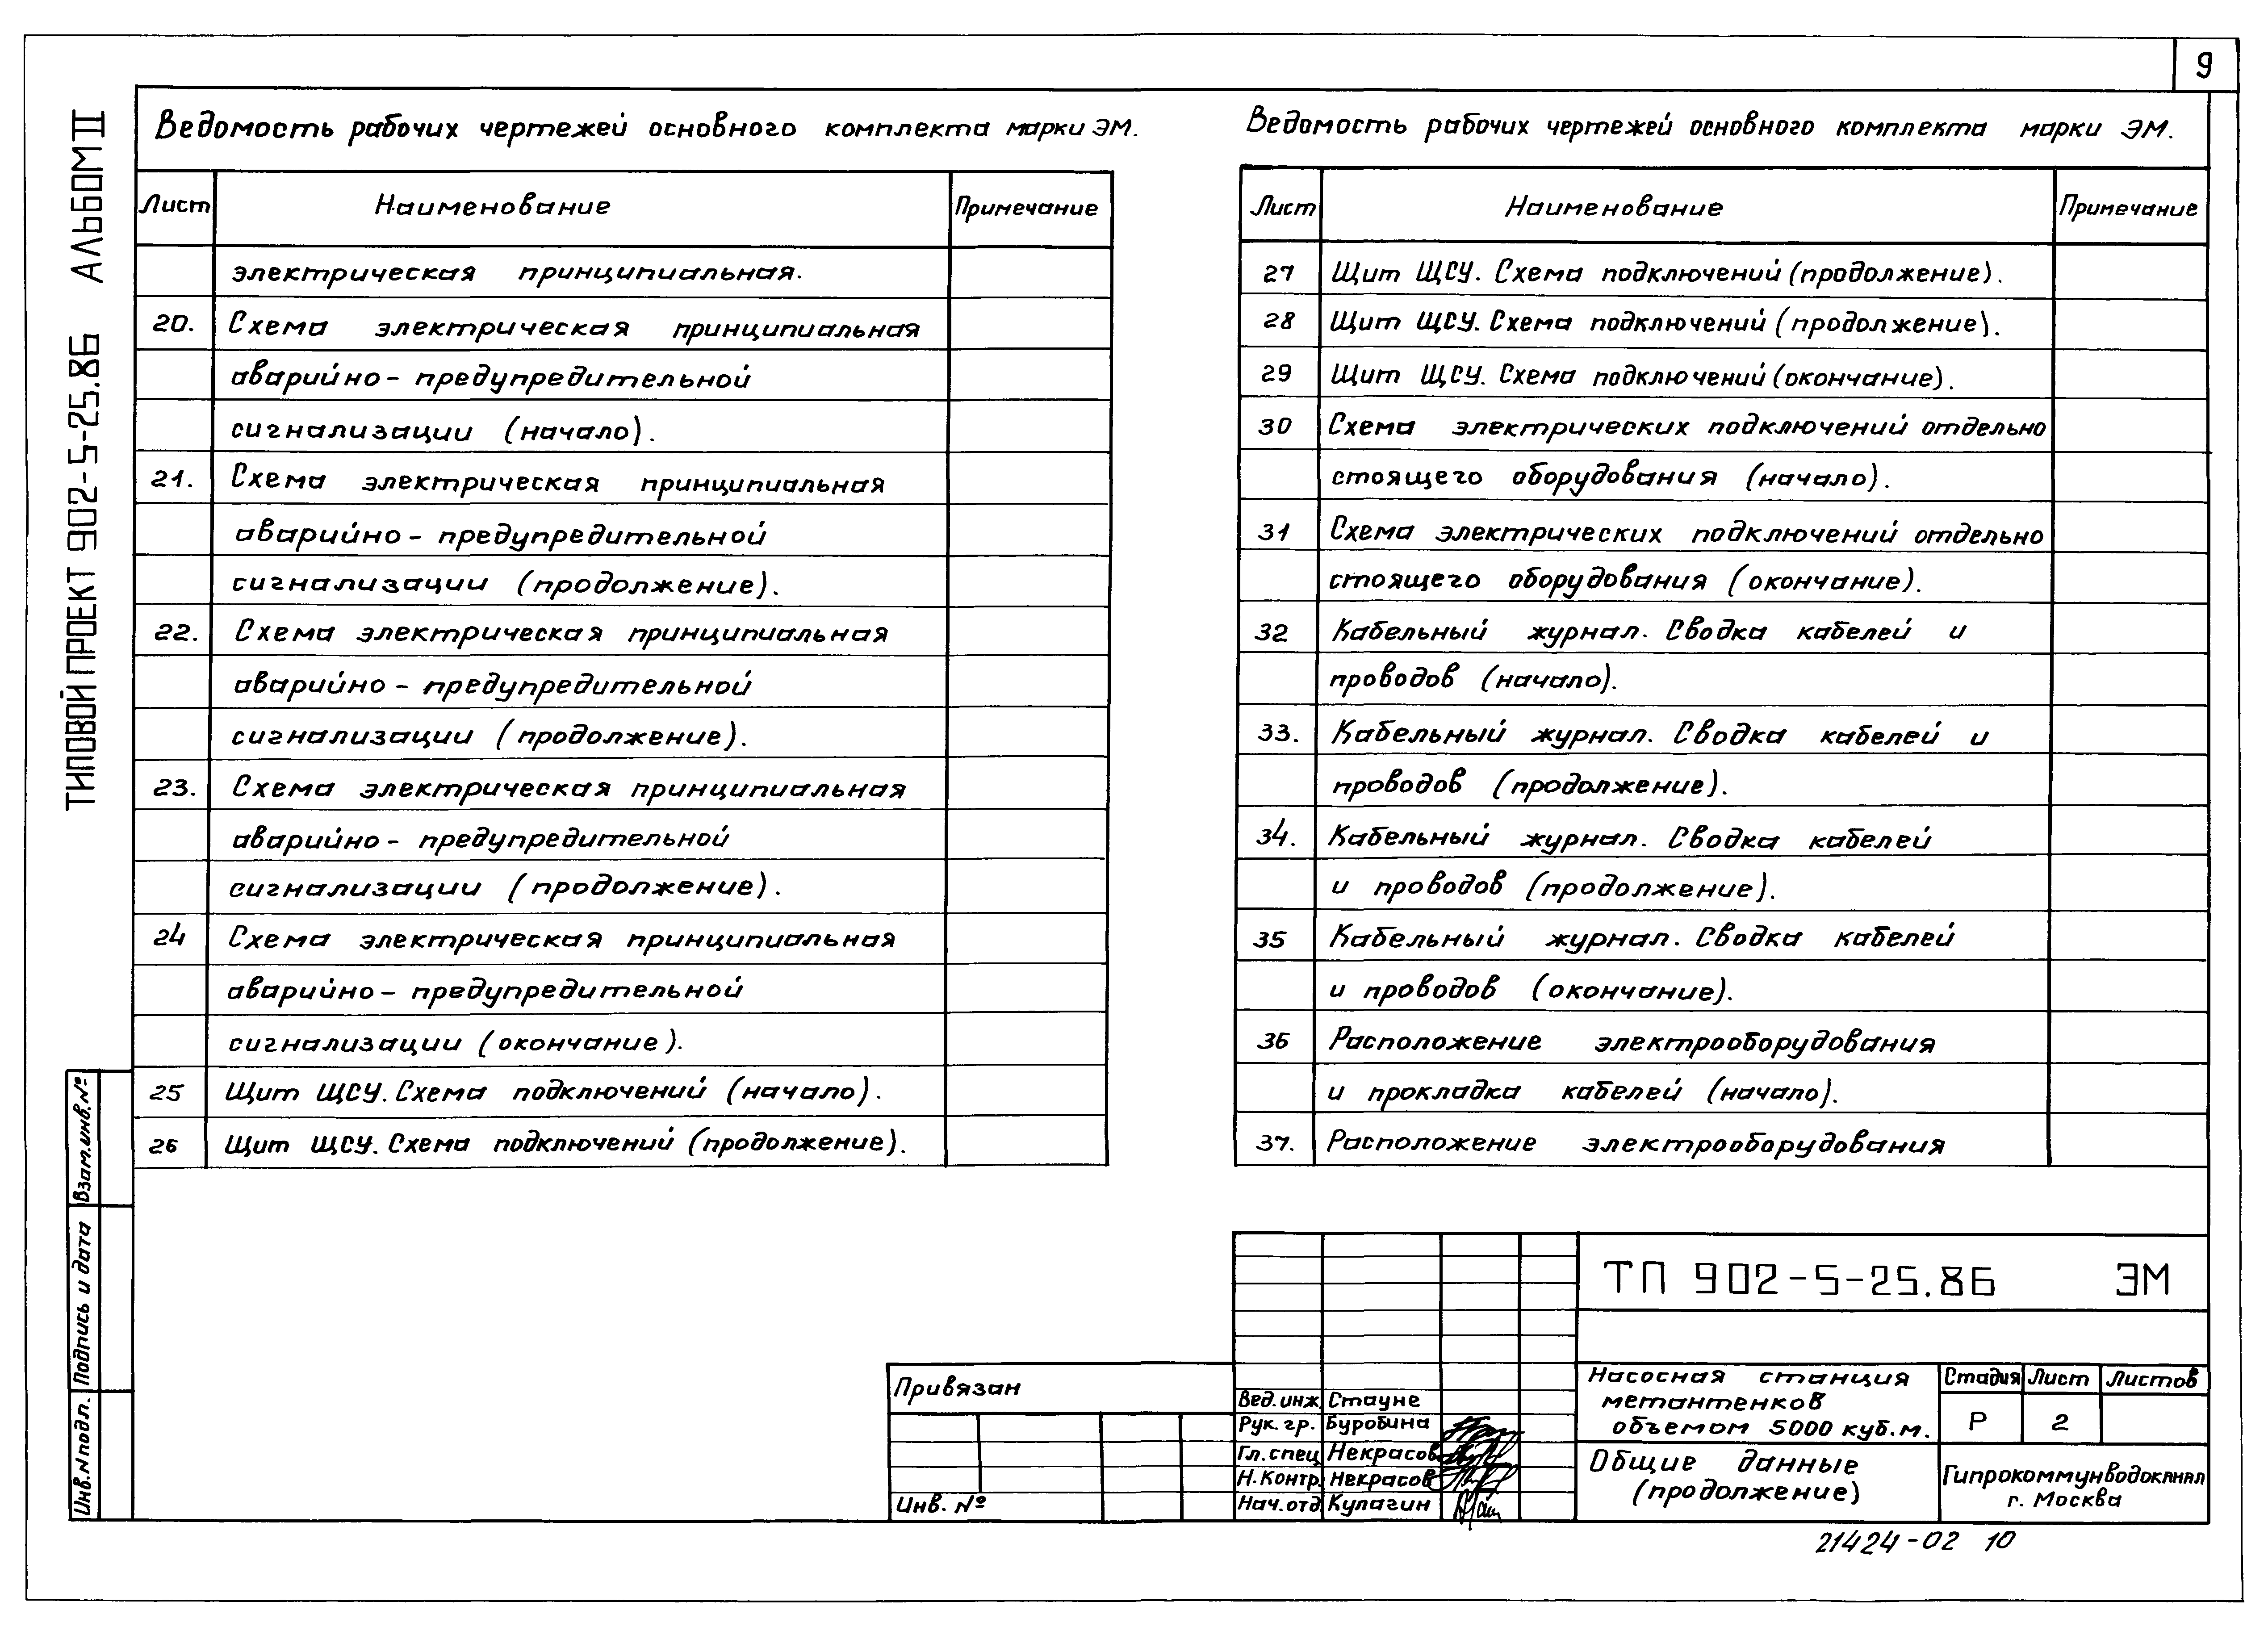 9
ТИПОВОЙ ПРОЕКТ 902-5-25.86 АЛЬБОМ II
Ведомость рабочих чертежей основного комплекта марки ЭМ.
Лист Наименование Примечание
электрическая принципиальная.
20. Схема электрическая принципиальная
аварийно-предупредительной
сигнализации (начало).
21. Схема электрическая принципиальная
аварийно-предупредительной
сигнализации (продолжение).
22. Схема электрическая принципиальная
аварийно-предупредительной
сигнализации (продолжение).
23. Схема электрическая принципиальная
аварийно-предупредительной
сигнализации (продолжение).
24 Схема электрическая принципиальная
аварийно-предупредительной
сигнализации (окончание).
25 Щит ЩСУ. Схема подключений (начало).
26 Щит ЩСУ. Схема подключений (продолжение).
Ведомость рабочих чертежей основного комплекта марки ЭМ.
Лист Наименование Примечание
27 Щит ЩСУ. Схема подключений (продолжение).
28 Щит ЩСУ. Схема подключений (продолжение).
29 Щит ЩСУ. Схема подключений (окончание).
30 Схема электрических подключений отдельно
стоящего оборудования (начало).
31 Схема электрических подключений отдельно
стоящего оборудования (окончание).
32 Кабельный журнал. Сводка кабелей и
проводов (начало).
33. Кабельный журнал. Сводка кабелей и
проводов (продолжение).
34. Кабельный журнал. Сводка кабелей
и проводов (продолжение).
35 Кабельный журнал. Сводка кабелей
и проводов (окончание).
36 Расположение электрооборудования
и прокладка кабелей (начало).
37. Расположение электрооборудования
Взам.инв.№
Подпись и дата
Инв.№подл.
Привязан
Инв. №
Вед.инж. Стауне
Рук.гр. Буробина
Гл.спец Некрасов
Н.Контр. Некрасов
Нач.отд Кулагин
ТП 902-5-25.86 ЭМ
Насосная станция
метантенков
объемом 5000 куб.м.
Стадия Лист Листов
Р 2
Общие данные
(продолжение)
Гипрокоммунводоканал
г. Москва
21424-02 10